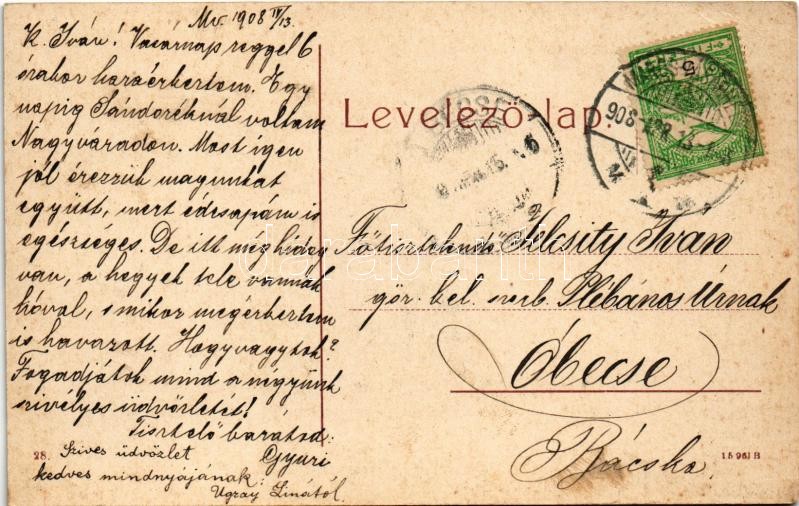 Mv. 1908 IV/13.
K. Iván! Vasárnap reggel 6
órakor hazaérkeztem. Egy
napig Sándoréknál voltam
Nagyváradon. Most igen
jól érezzük magunkat
együtt, mert édesapám is
egészséges. De itt még hideg
van, a hegyek tele vannak
hóval, s mikor megérkeztem
is havazott. Hogy vagytok?
Fogadjátok mind a négyünk
szivélyes üdvözletét!
Tisztelő barátod:
Gyuri
Szives üdvözlet
kedves mindnyájának:
Ugray Linától.
28.
Levelező lap.
5
908
Főtisztelendő Jelcsity Iván
gör. kel. szerb. Plébános Úrnak
Óbecse
Bácska
15961 B